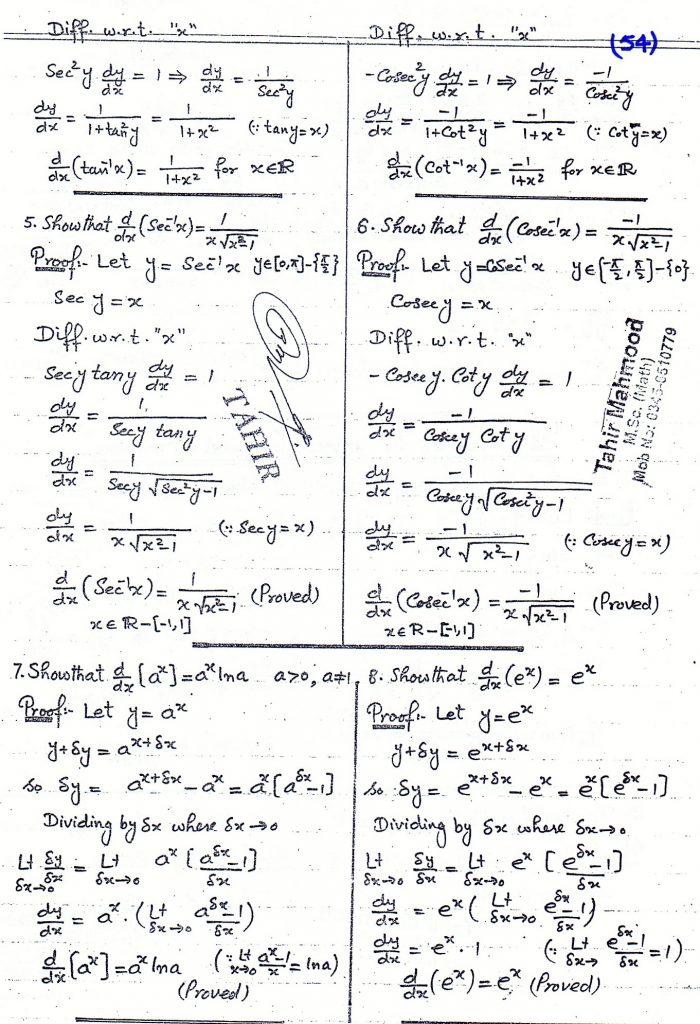 Diff. w.r.t. "x"
Sec²y dy/dx = 1 ⇒ dy/dx = 1/Sec²y
dy/dx = 1/(1+tan²y) = 1/(1+x²) (∵ tany=x)
d/dx (tan⁻¹x) = 1/(1+x²) for x∈ℝ
Diff. w.r.t. "x"
(54)
-Cosec²y dy/dx = 1 ⇒ dy/dx = -1/Cosec²y
dy/dx = -1/(1+Cot²y) = -1/(1+x²) (∵ Coty=x)
d/dx (Cot⁻¹x) = -1/(1+x²) for x∈ℝ
5. Show that d/dx (Sec⁻¹x) = 1/(x√(x²-1))
Proof:- Let y = Sec⁻¹x y∈[0,π]-{π/2}
Sec y = x
Diff. w.r.t. "x"
Secy tany dy/dx = 1
dy/dx = 1/(Secy tany)
dy/dx = 1/(Secy √(Sec²y-1))
dy/dx = 1/(x√(x²-1)) (∵ Secy=x)
d/dx (Sec⁻¹x) = 1/(x√(x²-1)) (Proved)
x∈ℝ-[-1,1]
TAHIR
6. Show that d/dx (Cosec⁻¹x) = -1/(x√(x²-1))
Proof:- Let y=CoSec⁻¹x y∈[-π/2, π/2]-{0}
Cosecy = x
Diff. w.r.t. "x"
- Cosecy. Coty dy/dx = 1
dy/dx = -1/(Cosecy Coty)
dy/dx = -1/(Cosecy√(Cosec²y-1))
dy/dx = -1/(x√(x²-1)) (∵ Cosecy=x)
d/dx (Cosec⁻¹x) = -1/(x√(x²-1)) (Proved)
x∈ℝ-[-1,1]
Tahir Mahmood
M.Sc. (Math)
Mob No: 0345-8510779
7. Show that d/dx [aˣ] = aˣ lna a>0, a≠1
Proof:- Let y = aˣ
y+δy = a^(x+δx)
so δy = a^(x+δx) - aˣ = aˣ[a^δx - 1]
Dividing by δx where δx→0
Lt δx→0 δy/δx = Lt δx→0 aˣ [a^δx - 1]/δx
dy/dx = aˣ. (Lt δx→0 (a^δx - 1)/δx)
d/dx [aˣ] = aˣ lna (∵ Lt x→0 (aˣ-1)/x = lna)
(Proved)
8. Show that d/dx (eˣ) = eˣ
Proof:- Let y=eˣ
y+δy = e^(x+δx)
so δy = e^(x+δx) - eˣ = eˣ[e^δx - 1]
Dividing by δx where δx→0
Lt δx→0 δy/δx = Lt δx→0 eˣ [e^δx - 1]/δx
dy/dx = eˣ (Lt δx→0 (e^δx - 1)/δx)
dy/dx = eˣ. 1 (∵ Lt δx→ (e^δx - 1)/δx = 1)
d/dx (eˣ) = eˣ (Proved)